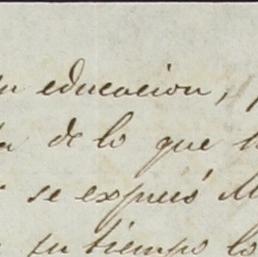 educacion,
de lo que
se expresó
su tiempo lo